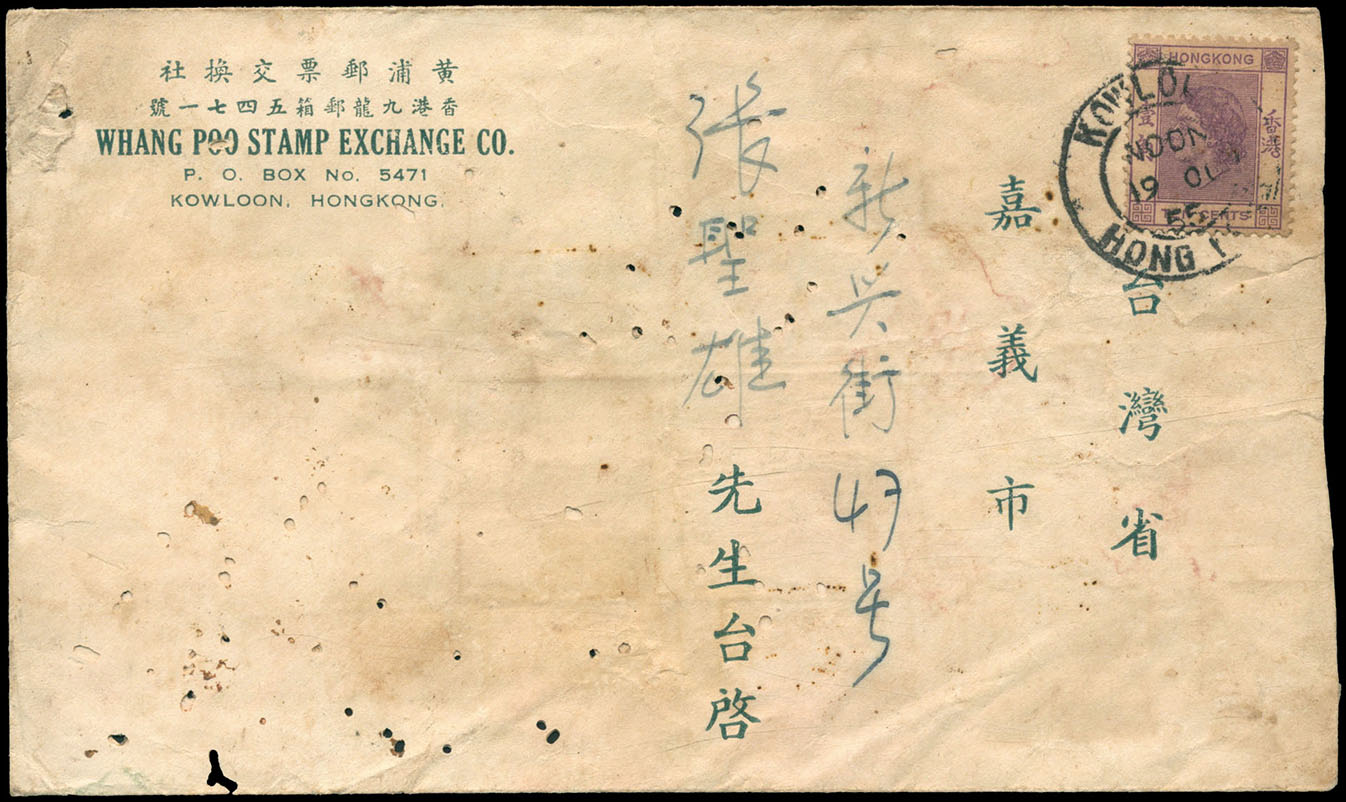 黄浦郵票交換社
香港九龍郵箱五四七一號
WHANG POO STAMP EXCHANGE CO.
P. O. BOX No. 5471
KOWLOON, HONGKONG.
HONGKONG
香港
CENTS
NOON
19
55
HONG
台灣省
嘉義市
新兴街47号
張聖雄先生台啓